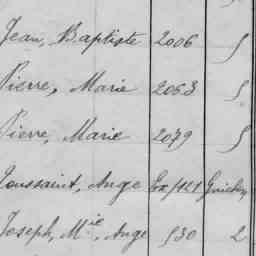 Jean, Baptiste 2006 S
Pierre, Marie 2063 S
Pierre, Marie 2079 S
Toussaint, Ange
Joseph, Mie, Ange 930 2